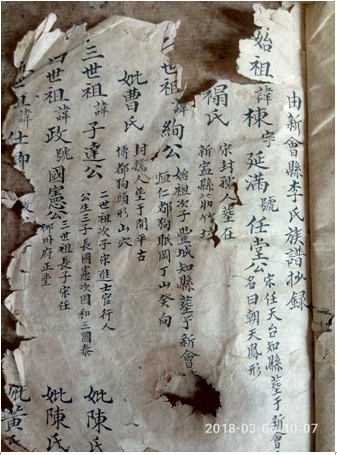 由新會縣李氏族譜抄錄
始祖諱棟字延滿號任堂公
宋任天台知縣塋于新會
名曰朝天鳳形
禤氏
宋封孺人塋在
新寧縣
世祖諱絢公
始祖次子豐城知縣塋于新會
恒仁都狗眠岡丁山癸向
妣曹氏
封孺人塋于開平古
博都狗頭形山穴
三世祖諱子達公
二世祖次子宋進士官行人
公生三子長國憲次國和三國泰
妣陳氏
四世祖諱政號國憲公
三世祖長子宋任
柳州府正堂
妣陳氏
世祖諱仕
妣黃氏
2018-03-06 10:07